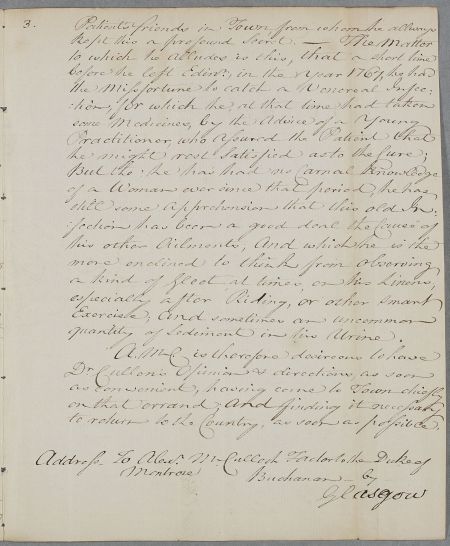 3. Patients friends in Town, from whom he allways
kept this a profound Secret. — The Matter
to which he alludes is this, that a short time
before he left Edinr. in the year 1767, he had
the Misfortune to catch a Venereal Infec:
:tion, for which he, at that time had taken
some Medicines, by the Advice of a Young
Practitioner, who assured the Patient that
he might rest Satisfied as to the Cure;
But tho: he has had no Carnal Knowledge
of a Woman ever since that period, he has
still some Apprehension that this old In:
:fection has been a good deal the Cause of
his other Ailments, And which he is the
more enclined to think from observing
a kind of Gleet at times, on his Linens,
especially after Riding, or other smart
Exercise; And sometimes an uncommon
quantity of Sediment in his Urine.
A. McC. is therefore desireous to have
Dr. Cullen's Opinion & directions, as soon
as convenient, having come to Town chiefly
on that errand; And finding it necessary
to return to the Country, as soon as possible.
Address To Alexr. McCulloch Factor to the Duke of
Montrose Buchanan — by
Glasgow